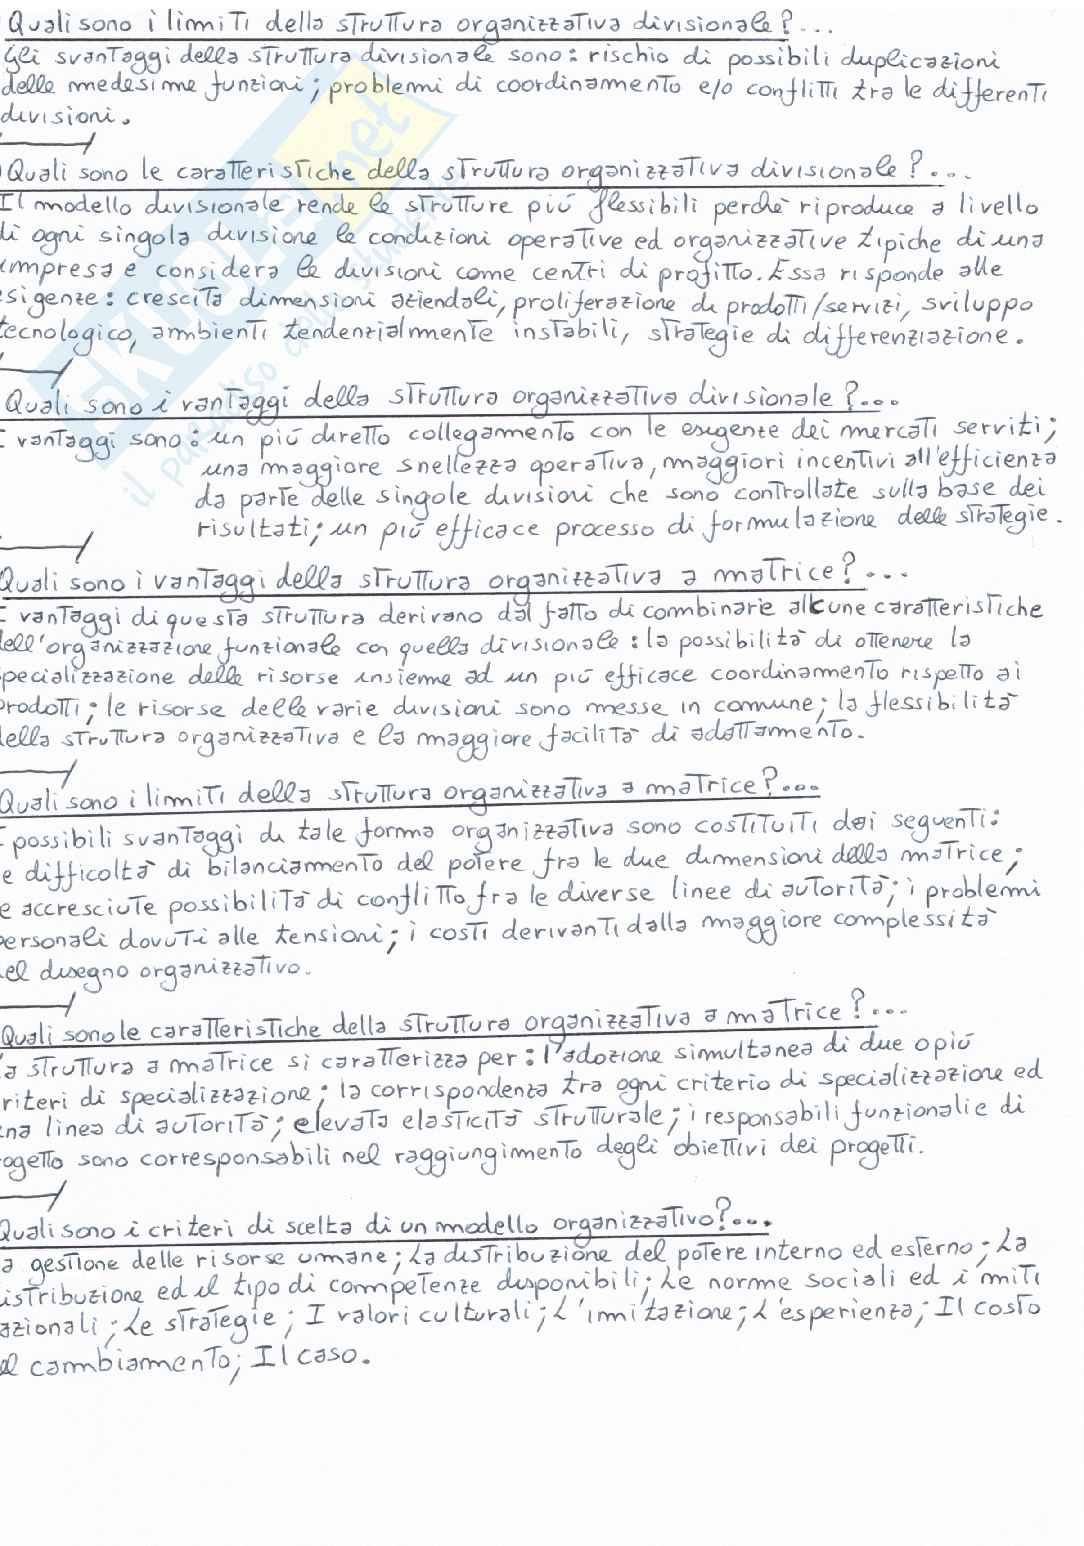 Quali sono i limiti della struttura organizzativa divisionale?...
Gli svantaggi della struttura divisionale sono: rischio di possibili duplicazioni
delle medesime funzioni; problemi di coordinamento e/o conflitti tra le differenti
divisioni.
Quali sono le caratteristiche della struttura organizzativa divisionale?...
Il modello divisionale rende le strutture più flessibili perchè riproduce a livello
di ogni singola divisione le condizioni operative ed organizzative tipiche di una
impresa e considera le divisioni come centri di profitto. Essa risponde alle
esigenze: crescita dimensioni aziendali, proliferazione di prodotti/servizi, sviluppo
tecnologico, ambienti tendenzialmente instabili, strategie di differenziazione.
Quali sono i vantaggi della struttura organizzativa divisionale?...
I vantaggi sono: un più diretto collegamento con le esigenze dei mercati serviti;
una maggiore snellezza operativa, maggiori incentivi all'efficienza
da parte delle singole divisioni che sono controllate sulla base dei
risultati; un più efficace processo di formulazione delle strategie.
Quali sono i vantaggi della struttura organizzativa a matrice?...
I vantaggi di questa struttura derivano dal fatto di combinare alcune caratteristiche
dell'organizzazione funzionale con quella divisionale: la possibilità di ottenere la
specializzazione delle risorse insieme ad un più efficace coordinamento rispetto ai
prodotti; le risorse delle varie divisioni sono messe in comune; la flessibilità
della struttura organizzativa e la maggiore facilità di adattamento.
Quali sono i limiti della struttura organizzativa a matrice?...
I possibili svantaggi di tale forma organizzativa sono costituiti dai seguenti:
le difficoltà di bilanciamento del potere fra le due dimensioni della matrice;
le accresciute possibilità di conflitto fra le diverse linee di autorità; i problemi
personali dovuti alle tensioni; i costi derivanti dalla maggiore complessità
nel disegno organizzativo.
Quali sono le caratteristiche della struttura organizzativa a matrice?...
La struttura a matrice si caratterizza per: l'adozione simultanea di due o più
criteri di specializzazione; la corrispondenza tra ogni criterio di specializzazione ed
una linea di autorità; elevata elasticità strutturale; i responsabili funzionali e di
progetto sono corresponsabili nel raggiungimento degli obiettivi dei progetti.
Quali sono i criteri di scelta di un modello organizzativo?...
La gestione delle risorse umane; La distribuzione del potere interno ed esterno; La
distribuzione ed il tipo di competenze disponibili; Le norme sociali ed i miti
nazionali; Le strategie; I valori culturali; L'imitazione; L'esperienza; Il costo
del cambiamento; Il caso.
SKUOLA.net
il paradiso dello studente